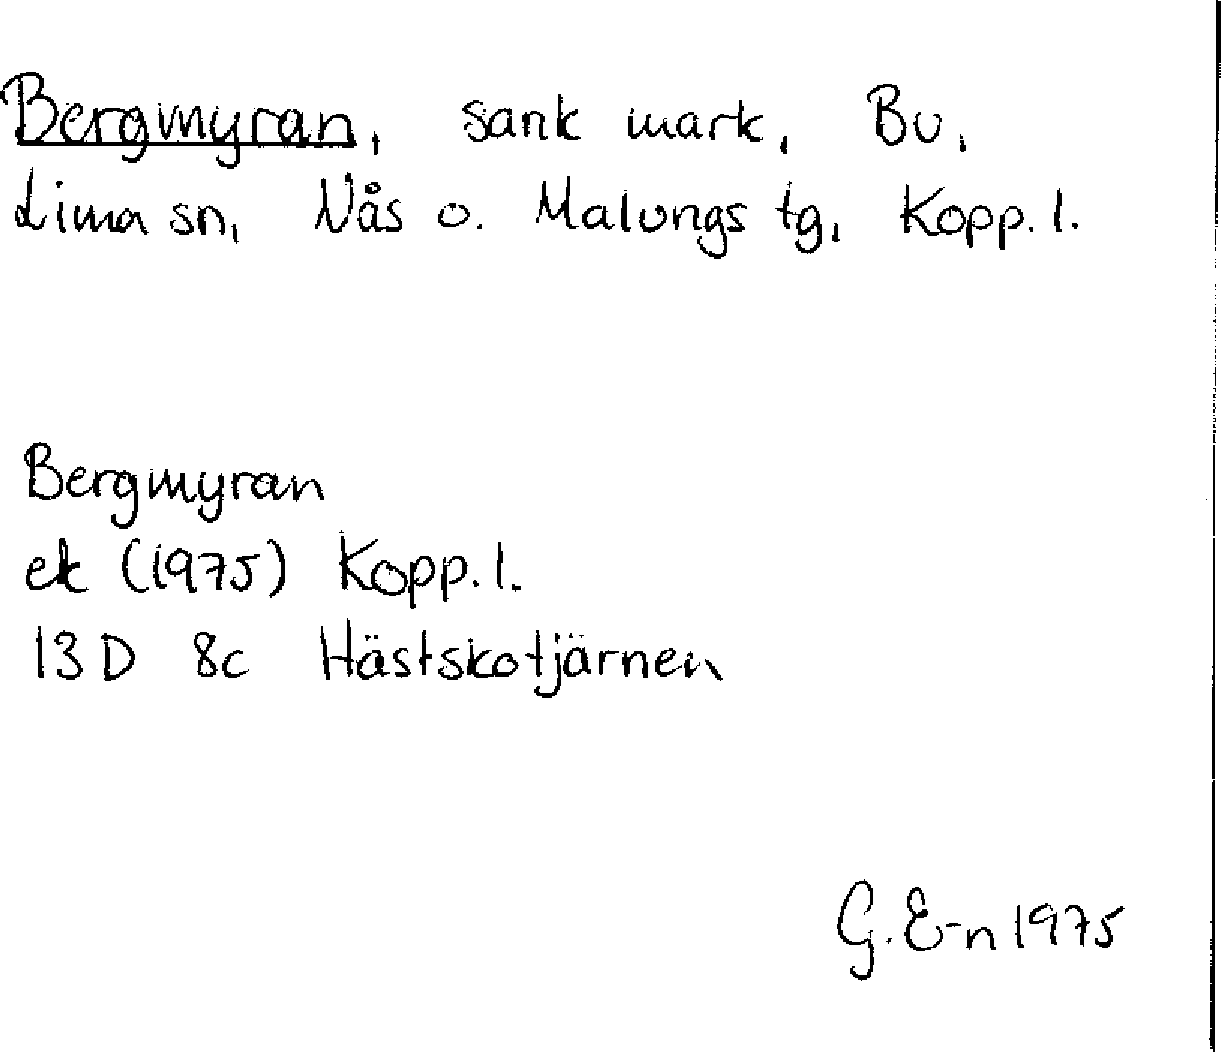 Bergmyran, sank mark, Bu,
Lima sn, Nås o. Malungs tg, Kopp. l.
Bergmyran
ek (1975) Kopp. l.
13 D 8c Hästskotjärnen
G. E-n 1975